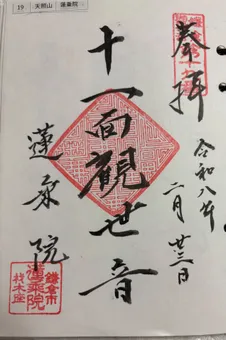 19 天照山 蓮乗院
奉拝
令和八年
二月廿三日
十一面觀世音
蓮乗院
鎌倉市
蓮乗院
材木座